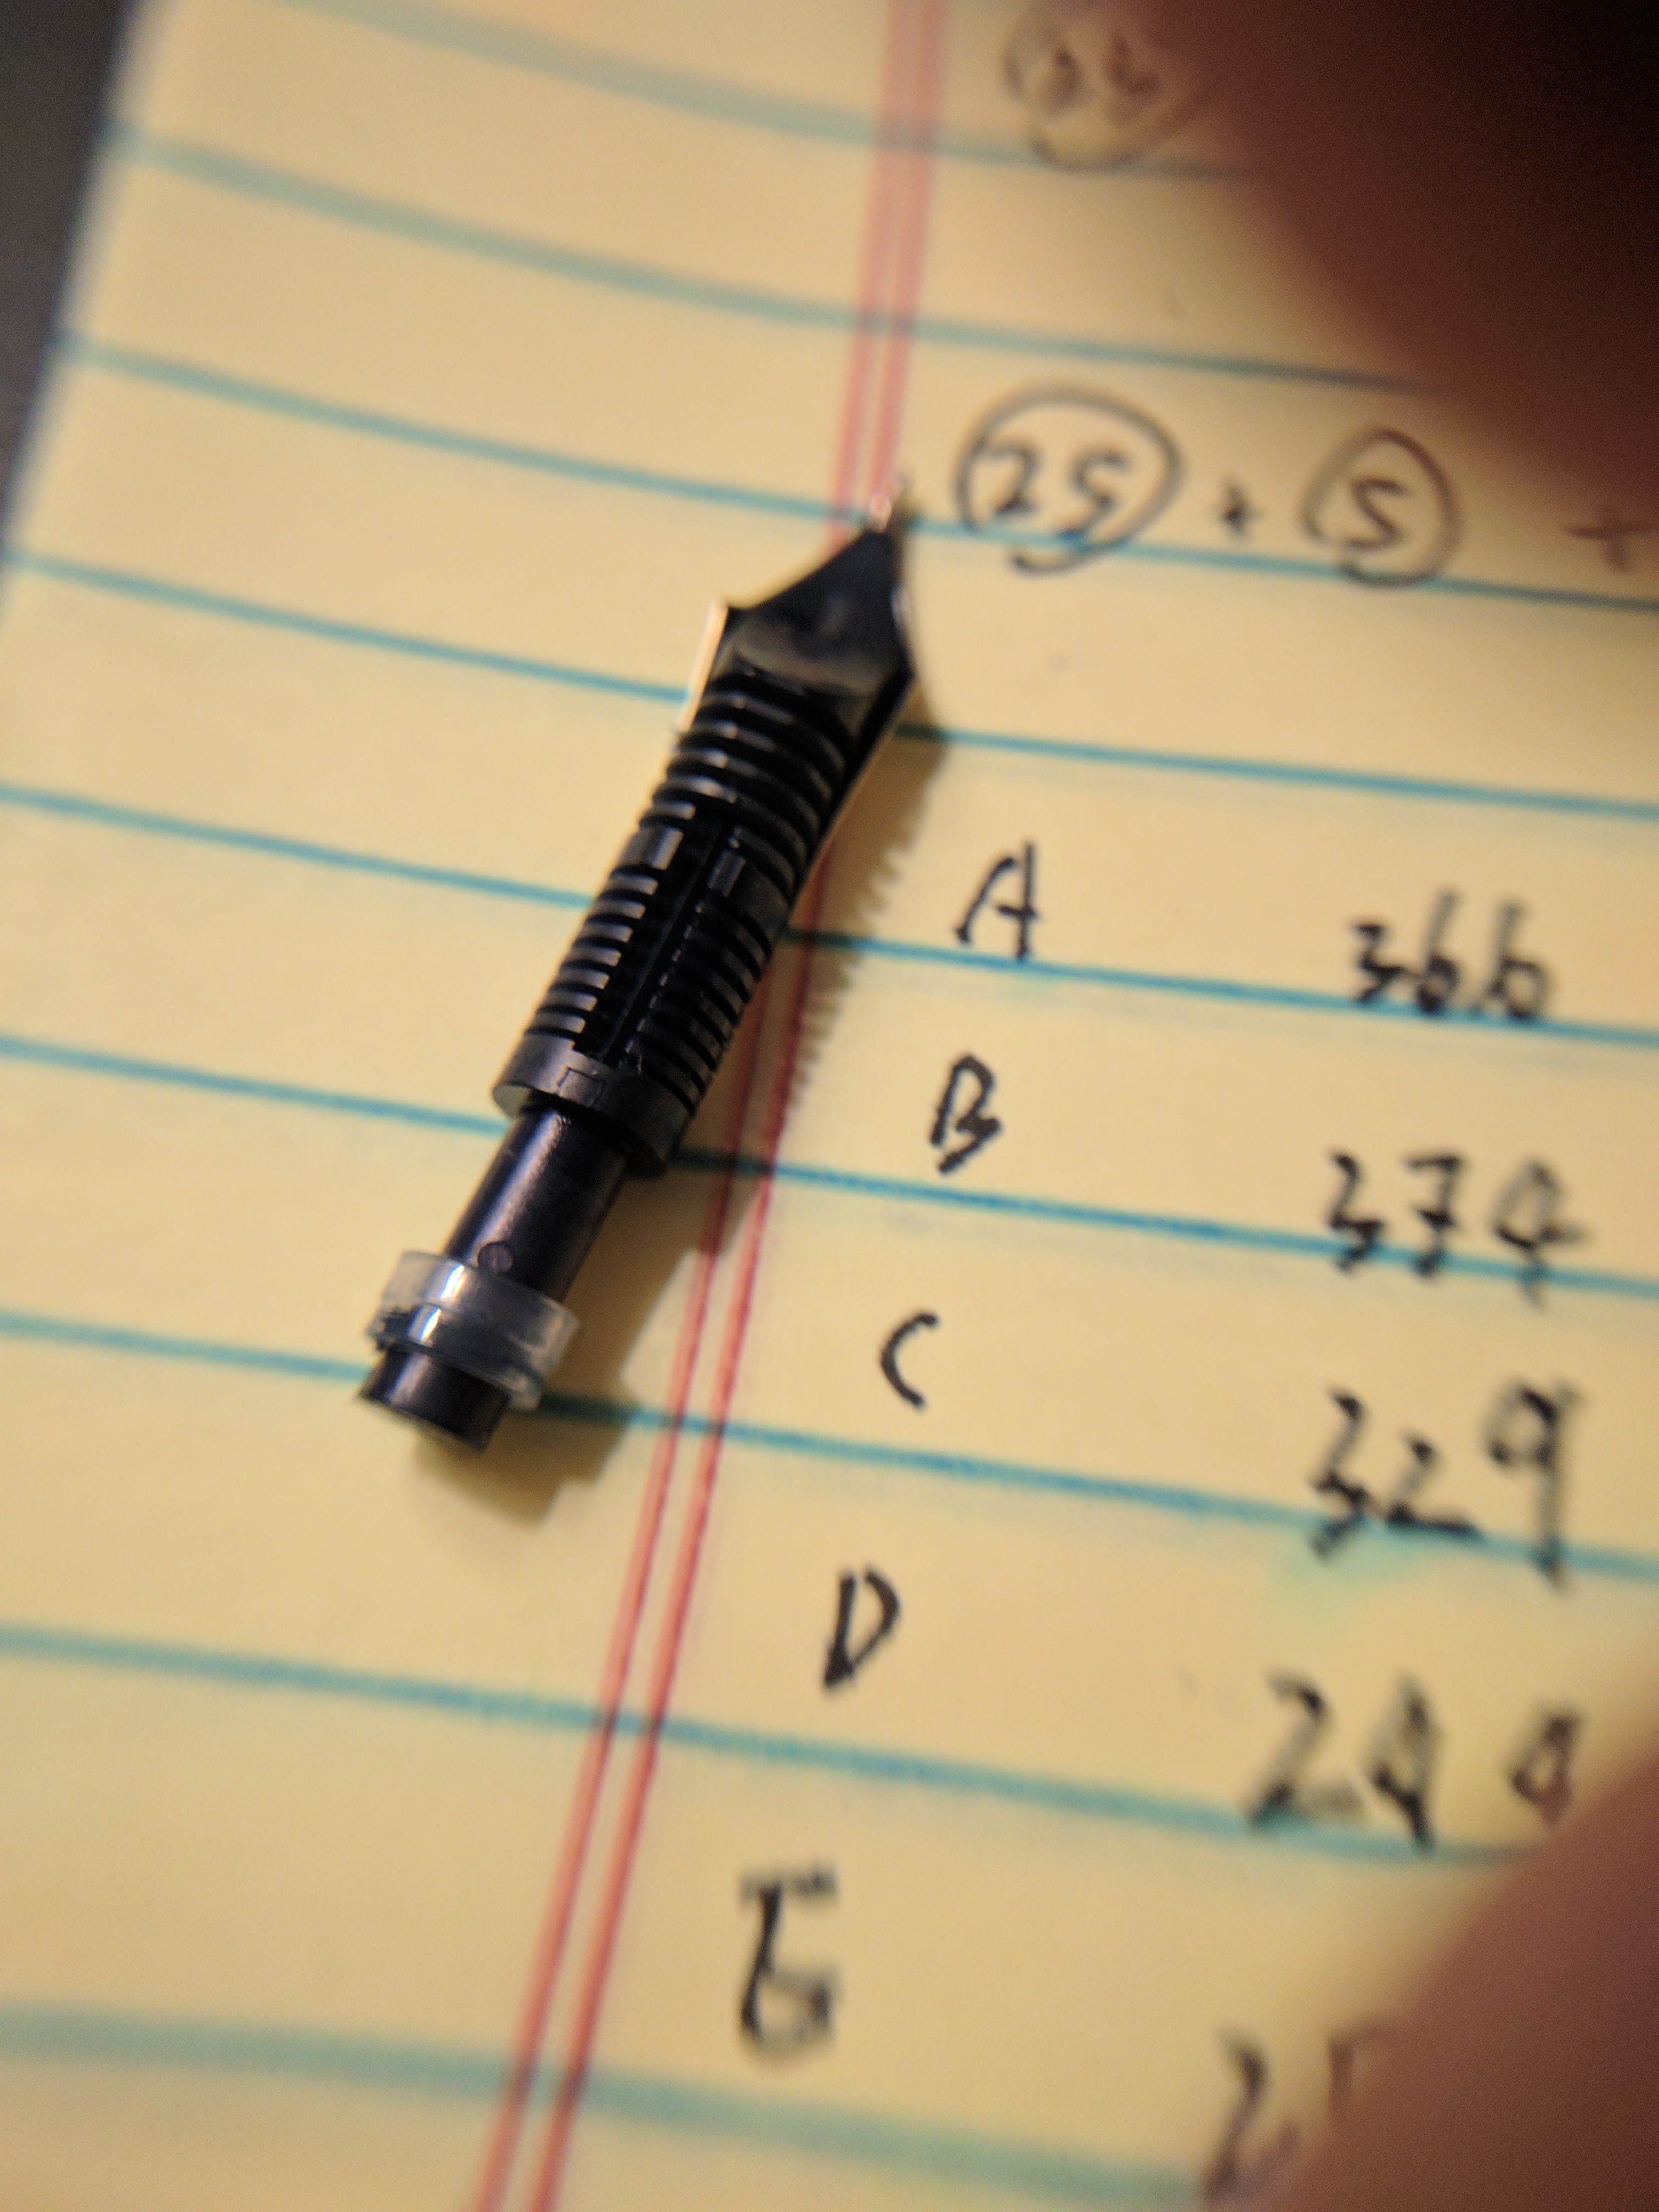 25 + 5 +
A 366
B 374
C 329
D
E